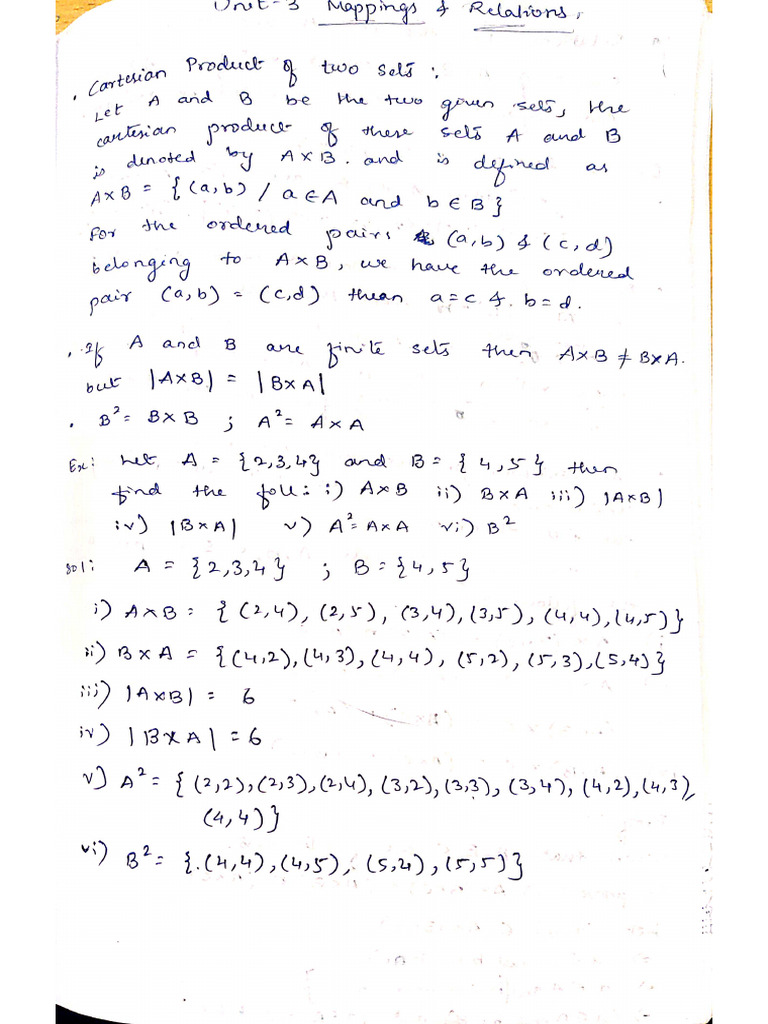 Unit-3 Mappings & Relations.
. Cartesian Product of two sets :
Let A and B be the two given sets, the
cartesian product of these sets A and B
is denoted by A×B. and is defined as
A×B = {(a,b) / a∈A and b∈B}
For the ordered pairs (a,b) & (c,d)
belonging to A×B, we have the ordered
pair (a,b) = (c,d) thean a=c &. b=d.
. If A and B are finite sets then A×B ≠ B×A.
but |A×B| = |B×A|
. B²= B×B ; A²= A×A
Ex: Let A = {2,3,4} and B = {4,5} then
find the foll: i) A×B ii) B×A iii) |A×B|
iv) |B×A| v) A²= A×A vi) B²
Sol: A = {2,3,4} ; B = {4,5}
i) A×B = {(2,4), (2,5), (3,4), (3,5), (4,4), (4,5)}
ii) B×A = {(4,2), (4,3), (4,4), (5,2), (5,3), (5,4)}
iii) |A×B| = 6
iv) |B×A| = 6
v) A² = {(2,2), (2,3), (2,4), (3,2), (3,3), (3,4), (4,2), (4,3),
(4,4)}
vi) B² = {.(4,4), (4,5), (5,4), (5,5)}